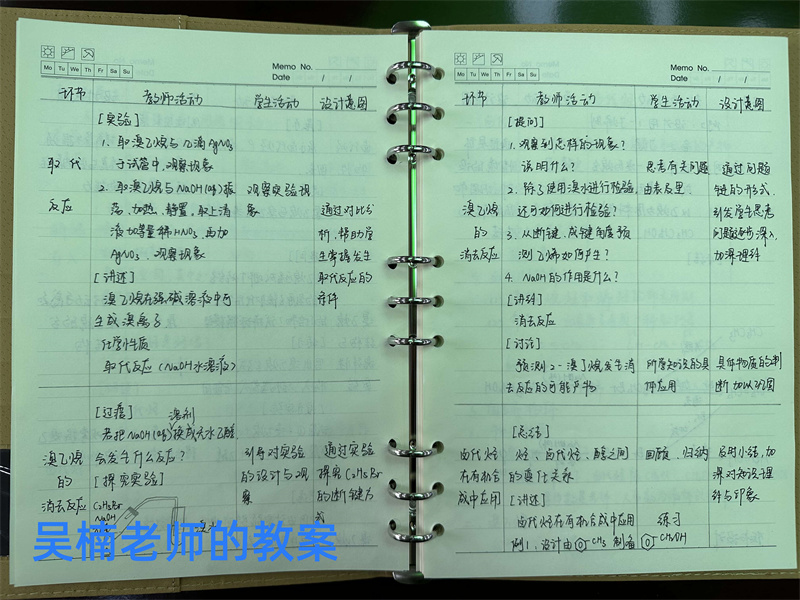 Memo No.
Mo Tu We Th Fr Sa Su
Date / /
环节 教师活动 学生活动 设计意图
[实验]
1. 取溴乙烷与几滴AgNO₃
取代 于试管中,观察现象
2. 取溴乙烷与NaOH(aq)振 观察实验现
反应 荡、加热、静置,取上清 象 通过对比分
液加等量稀HNO₃再加 析,帮助学
AgNO₃,观察现象 生掌握发生
[讲述] 取代反应的
溴乙烷在强碱溶液中可 条件
生成溴离子
化学性质
取代反应(NaOH水溶液)
[过渡] 溶剂
若把NaOH(aq)换成无水乙醇,
溴乙烷 会发生什么反应? 引导对实验 通过实验
的 [探究实验] 的设计与观 探究C₂H₅Br
消去反应 C₂H₅Br 察 的断键方
NaOH 式
吴楠老师的教案
Memo No.
Mo Tu We Th Fr Sa Su
Date / /
环节 教师活动 学生活动 设计意图
[提问]
1. 观察到怎样的现象?
说明什么? 思考有关问题 通过问题
2. 除了使用溴水进行检验, 由表及里 链的形式,
溴乙烷 还可如何进行检验? 引发学生思考
的 3. 从断键、成键角度预 问题逐步深入,
消去反应 测乙烯如何产生? 加深理解
4. NaOH的作用是什么?
[讲解]
消去反应
[讨论]
预测2-溴丁烷发生消 所学知识的具 具体物质的判
去反应的可能产物 体应用 断加以巩固
[总结]
卤代烃 烃、卤代烃、醇之间 回顾、归纳 及时小结,加
在有机合 的衍化关系 深对知识理
成中应用 [讲述] 解与印象
卤代烃在有机合成中应用 练习
例1、设计由 CH₃ 制备 CH₂OH